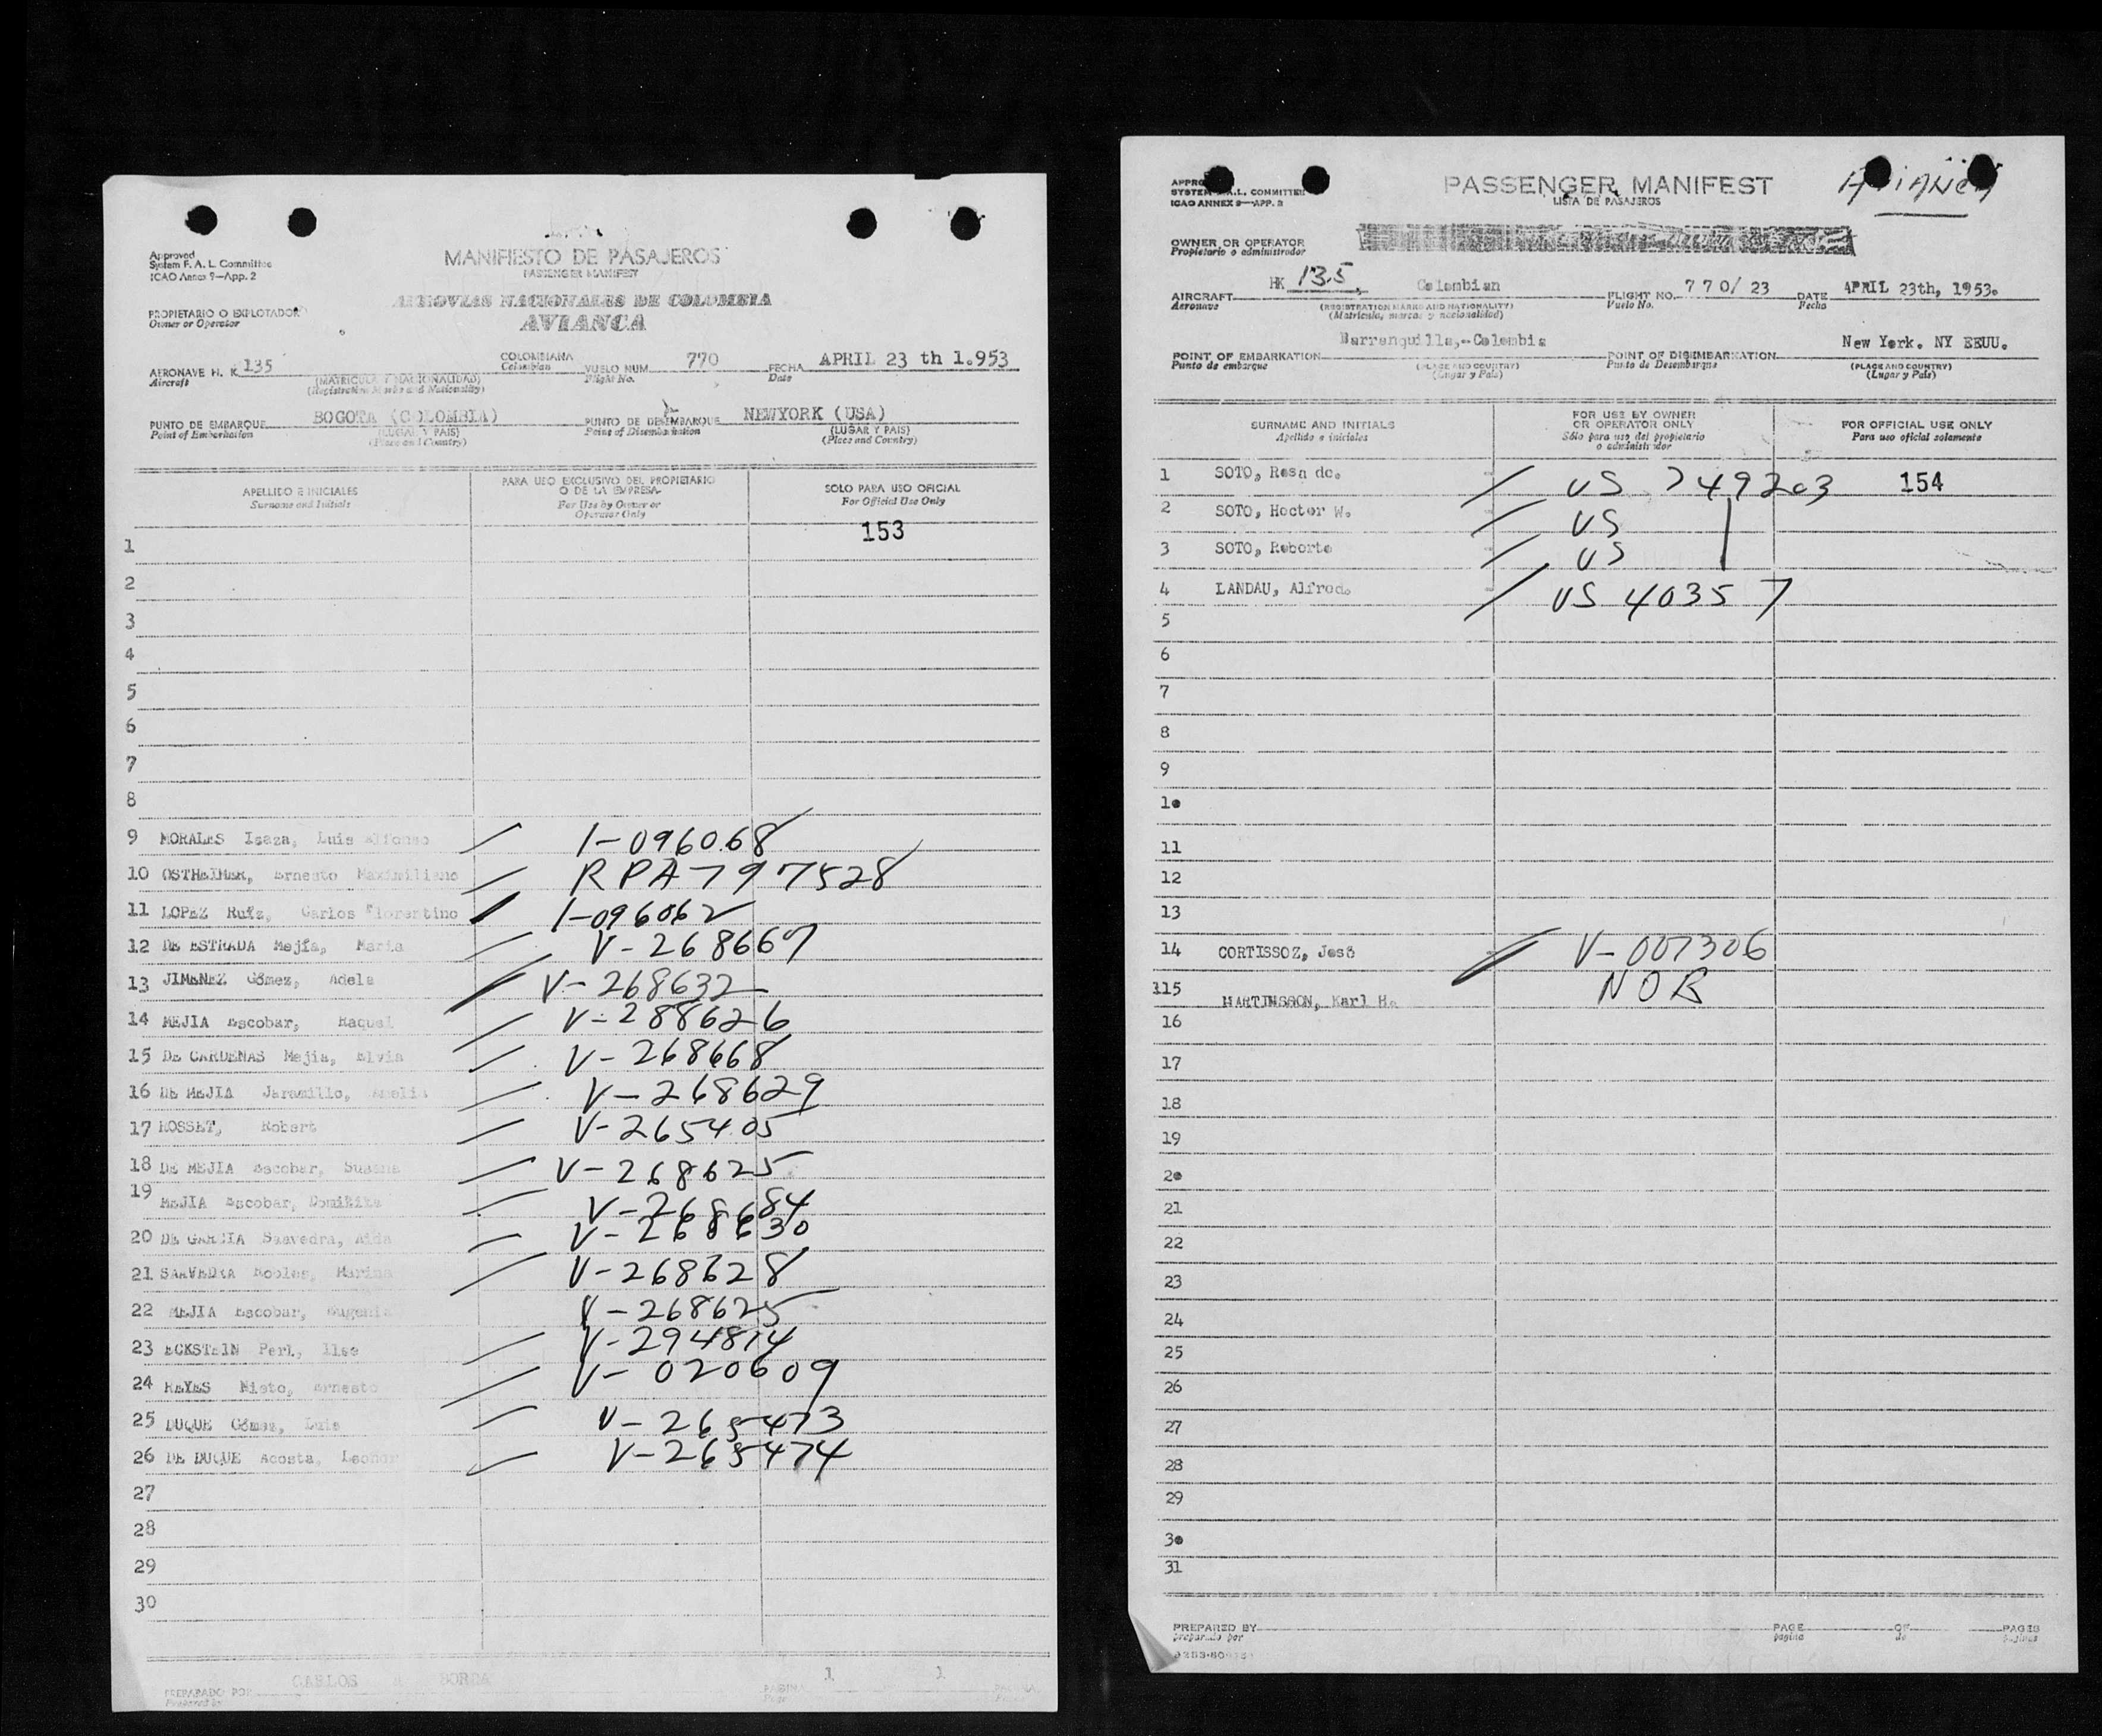 Approved
System F. A. L. Committee
ICAO Annex 9—App. 2
MANIFIESTO DE PASAJEROS
PASSENGER MANIFEST
AEROVIAS NACIONALES DE COLOMBIA
AVIANCA
PROPIETARIO O EXPLOTADOR
Owner or Operator
AERONAVE H. K 135
Aircraft
(MATRICULA Y NACIONALIDAD)
(Registration Marks and Nationality)
COLOMBIANA
Colombian
VUELO NUM. 770
Flight No.
FECHA APRIL 23 th 1.953
Date
PUNTO DE EMBARQUE BOGOTA (COLOMBIA)
Point of Embarkation
(LUGAR Y PAIS)
(Place and Country)
PUNTO DE DESEMBARQUE NEWYORK (USA)
Point of Disembarkation
(LUGAR Y PAIS)
(Place and Country)
APELLIDO E INICIALES
Surname and Initials
PARA USO EXCLUSIVO DEL PROPIETARIO
O DE LA EMPRESA
For Use by Owner or
Operator Only
SOLO PARA USO OFICIAL
For Official Use Only
153
1
2
3
4
5
6
7
8
9 MORALES Isaza, Luis Alfonso 1-096068
10 OSTHEIMER, Ernesto Maximiliano RPA797528
11 LOPEZ Ruiz, Carlos Florentino 1-096062
12 DE ESTRADA Mejía, Maria V-268667
13 JIMENEZ Gömez, Adela V-268632
14 MEJIA Escobar, Raquel V-288626
15 DE CARDENAS Mejia, Elvia V-268668
16 DE MEJIA Jaramillo, Amelia V-268629
17 ROSSET, Robert V-265405
18 DE MEJIA Escobar, Susana V-268625
19 MEJIA Escobar, V-268684
20 DE GARCIA Saavedra, Aida V-268630
21 SAAVEDRA Robles, Marina V-268628
22 MEJIA Escobar, Eugenia V-268625
23 ECKSTEIN Perl, Ilse V-294814
24 REYES Nieto, Ernesto V-020609
25 DUQUE Gömez, Luis V-265473
26 DE DUQUE Acosta, Leonor V-265474
27
28
29
30
PREPARADO POR CARLOS BORDA
PAGINA 1 1
APPRO
SYSTEM A.L. COMMITTEE
ICAO ANNEX 9—APP. 2
PASSENGER MANIFEST
LISTA DE PASAJEROS
AVIANCA
OWNER OR OPERATOR
Propietario o administrador
AIRCRAFT HK 135, Colombian
Aeronave
(REGISTRATION MARKS AND NATIONALITY)
(Matrícula, marcas y nacionalidad)
FLIGHT NO. 770/ 23
Vuelo No.
DATE APRIL 23th, 1953.
Fecha
POINT OF EMBARKATION Barranquilla,-Colombia
Punto de embarque
(PLACE AND COUNTRY)
(Lugar y País)
POINT OF DISEMBARKATION New York. NY EEUU.
Punto de Desembarque
(PLACE AND COUNTRY)
(Lugar y País)
SURNAME AND INITIALS
Apellido e iniciales
FOR USE BY OWNER
OR OPERATOR ONLY
Sólo para uso del propietario
o administrador
FOR OFFICIAL USE ONLY
Para uso oficial solamente
1 SOTO, Rosa de. US 749203 154
2 SOTO, Hector W. US
3 SOTO, Roberto US
4 LANDAU, Alfred. US 40357
5
6
7
8
9
10
11
12
13
14 CORTISSOZ, José V-007306
115 MARTINSSON, Karl H. NOB
16
17
18
19
20
21
22
23
24
25
26
27
28
29
30
31
PREPARED BY
preparado por
PAGE OF PAGES
página de páginas